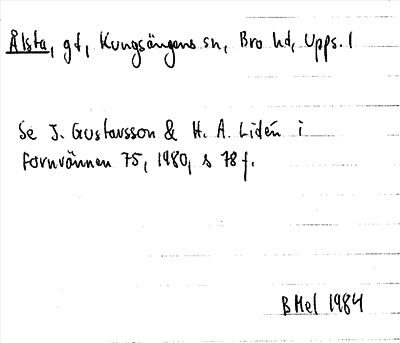 Ålsta, gd, Kungsängens sn, Bro hd, Upps. l
Se J. Gustavsson & H. A. Lidén i
Fornvännen 75, 1980, s 78 f.
BHel 1984